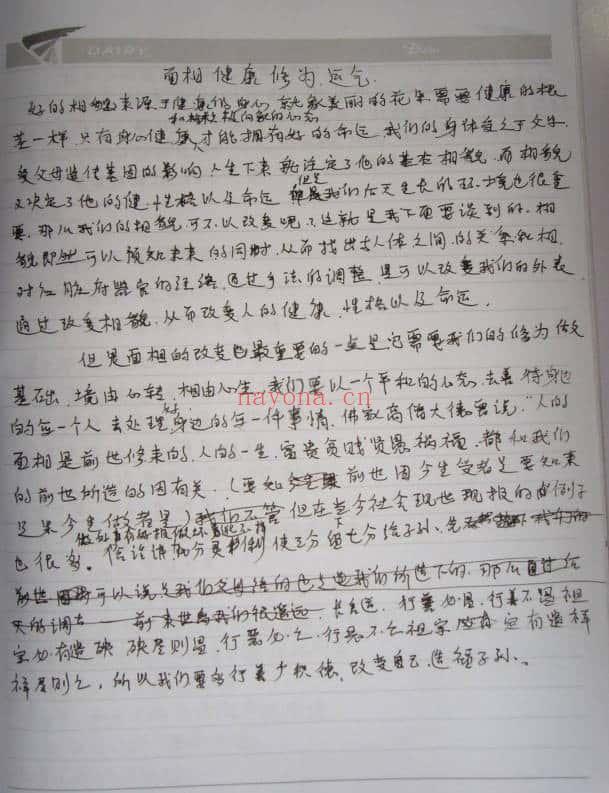 DAIRY
面相 健康 修为 运气
好的相貌来源于健康的身心 就象美丽的花朵需要健康的根
和积极向上的心态
茎一样 只有身心健康 才能拥有好的命运 我们的身体受之于父母
受父母遗传基因的影响 人生下来就注定了他的基本相貌 而相貌
又决定了他的健 性格以及命运 但是我们后天生长的环境也很重
要 那么我们的相貌可不以改变呢 这就是我下面要谈到的 相
貌即然可以预知未来的同时 从而找出与人体之间的关系和相
对应脏府器官的经络 通过手法的调整 是可以改变我们的外表
通过改变相貌 从而改变人的健康 性格以及命运
但是面相的改变也最重要的一点是它需要我们的修为做
基础 境由心转 相由心生 我们要以一个平和的心态 去善待身边
的每一个人 去处理身边的每一件事情 佛教高僧大德曾说 “人的
面相是前世修来的 人的一生 富贵贫贱贤愚祸福 都和我们
的前世所造的因有关 (要知 前世因今生受者是 要知来
世果今生做者是) 我们不管 但在当今社会现世现报的例子
也很多。 使三分 留七分给子孙
可以说是我们父母给的也是我们所造下的 那么通过给
的调 前来世与我们很遥远 行善必昌 行善不昌 祖
宗必有遗殃 殃尽则昌 行恶必亡 行恶不亡 祖宗 定有遗祥
祥尽则亡 所以我们要多行善少积德 改变自己 造福子孙
nayona.cn